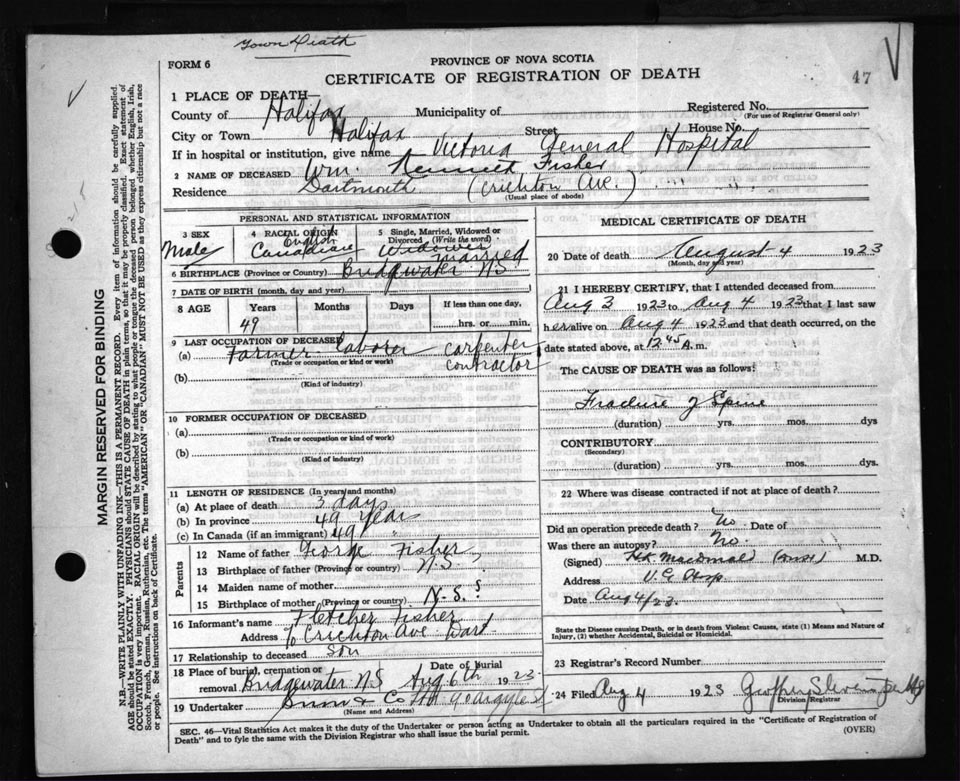 Town Death
FORM 6
PROVINCE OF NOVA SCOTIA
CERTIFICATE OF REGISTRATION OF DEATH
47
1 PLACE OF DEATH—
County of Halifax Municipality of Registered No.
(For use of Registrar General only)
City or Town Halifax Street House No.
If in hospital or institution, give name Victoria General Hospital
2 NAME OF DECEASED Wm. Kenneth Fisher
Residence Dartmouth (Crichton Ave.)
(Usual place of abode)
PERSONAL AND STATISTICAL INFORMATION
3 SEX
Male
4 RACIAL ORIGIN
English
Canadian
5 Single, Married, Widowed or Divorced (Write the word)
Widower
Married
6 BIRTHPLACE (Province or Country) Bridgewater NS
7 DATE OF BIRTH (month, day and year)
8 AGE Years Months Days If less than one day,
49 hrs. or min.
9 LAST OCCUPATION OF DECEASED
(a) Farmer Laborer carpenter
contractor
(Trade or occupation or kind of work)
(b)
(Kind of industry)
10 FORMER OCCUPATION OF DECEASED
(a)
(Trade or occupation or kind of work)
(b)
(Kind of industry)
11 LENGTH OF RESIDENCE (In years and months)
(a) At place of death 3 days
(b) In province 49 Years
(c) In Canada (if an immigrant) 49 "
Parents
12 Name of father George Fisher
13 Birthplace of father (Province or country) N.S.
14 Maiden name of mother ?
15 Birthplace of mother (Province or country) N.S.
16 Informant's name Fletcher Fisher
Address 6 Crichton Ave Dart
17 Relationship to deceased Son
18 Place of burial, cremation or removal Bridgewater N.S Date of burial Aug 6th 1923
19 Undertaker Snow & Co Argyle St
(Name and Address)
MEDICAL CERTIFICATE OF DEATH
20 Date of death August 4 1923
(Month, day and year)
21 I HEREBY CERTIFY, that I attended deceased from
Aug 3 1923 to Aug 4 1923 that I last saw
h alive on Aug 4 1923 and that death occurred, on the
date stated above, at 12.45 A.m.
The CAUSE OF DEATH was as follows:
Fracture of Spine
(duration) yrs. mos. dys
CONTRIBUTORY
(Secondary)
(duration) yrs. mos. dys.
22 Where was disease contracted if not at place of death?
Did an operation precede death? No Date of
Was there an autopsy? No.
(Signed) Macdonald M.D.
Address V.G. Hosp
Date Aug 4/23.
State the Disease causing Death, or in death from Violent Causes, state (1) Means and Nature of Injury, (2) whether Accidental, Suicidal or Homicidal.
23 Registrar's Record Number
24 Filed Aug 4 1923 Geoffrey Stevens
Division Registrar
SEC. 46—Vital Statistics Act makes it the duty of the Undertaker or person acting as Undertaker to obtain all the particulars required in the "Certificate of Registration of
Death" and to fyle the same with the Division Registrar who shall issue the burial permit.
(OVER)
MARGIN RESERVED FOR BINDING
N.B.—WRITE PLAINLY WITH UNFADING INK—THIS IS A PERMANENT RECORD. Every item of information should be carefully supplied.
AGE should be stated EXACTLY. PHYSICIANS should STATE CAUSE OF DEATH in plain terms, so that it may be properly classified. Exact statement of
OCCUPATION is very important. RACIAL ORIGIN will be described by stating to what people or tongue the deceased person belonged whether English, Irish,
Scotch, French, German, Russian, Ruthenian, etc. The terms "AMERICAN" OR "CANADIAN" MUST NOT BE USED as they express citizenship but not a race
or people. See instructions on back of Certificate.